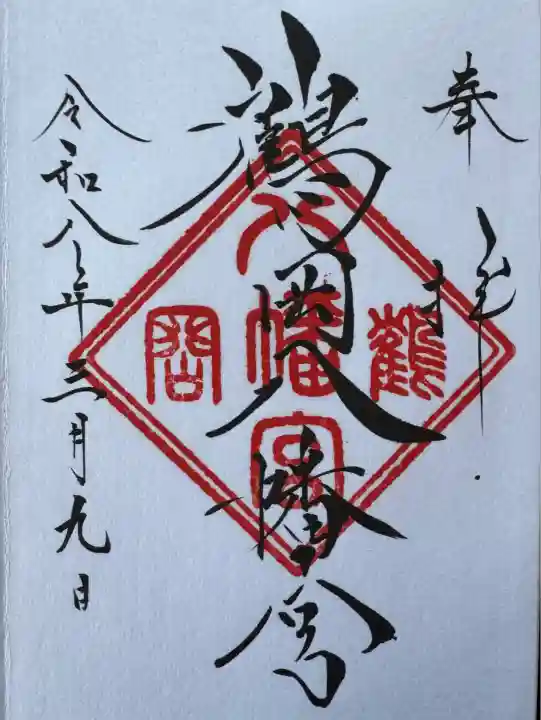 奉拝
鶴岡八幡宮
鶴岡
八幡宮
令和八年三月九日